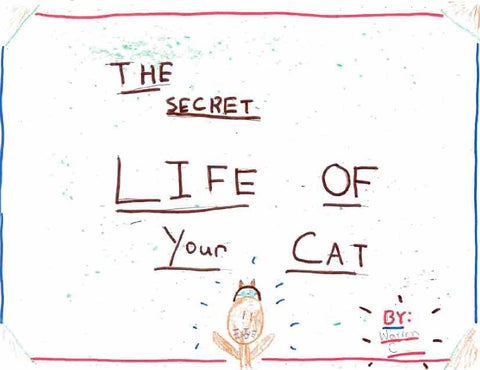 THE
SECRET
LIFE OF
Your CAT
BY:
Warren
C